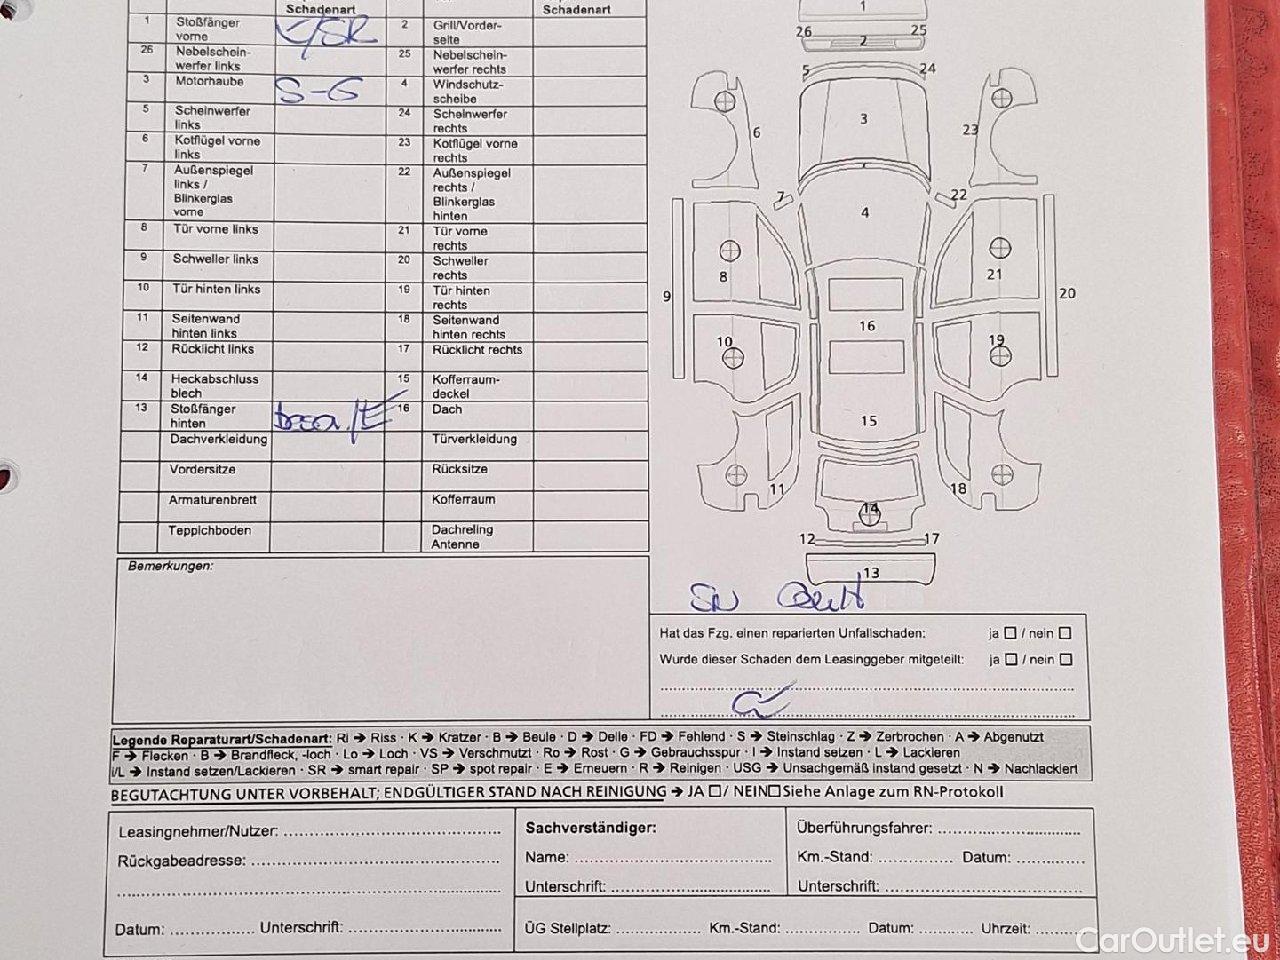 Schadenart Schadenart
1 Stoßfänger vorne K/SR 2 Grill/Vorder-seite
26 Nebelschein-werfer links 25 Nebelschein-werfer rechts
3 Motorhaube S-G 4 Windschutz-scheibe
5 Scheinwerfer links 24 Scheinwerfer rechts
6 Kotflügel vorne links 23 Kotflügel vorne rechts
7 Außenspiegel links / Blinkerglas vorne 22 Außenspiegel rechts / Blinkerglas hinten
8 Tür vorne links 21 Tür vorne rechts
9 Schweller links 20 Schweller rechts
10 Tür hinten links 19 Tür hinten rechts
11 Seitenwand hinten links 18 Seitenwand hinten rechts
12 Rücklicht links 17 Rücklicht rechts
14 Heckabschluss blech 15 Kofferraum-deckel
13 Stoßfänger hinten 16 Dach
Dachverkleidung Türverkleidung
Vordersitze Rücksitze
Armaturenbrett Kofferraum
Teppichboden Dachreling Antenne
1
26 2 25
5 24
3
6 23
7 22
4
8 21
9 20
16
10 19
15
11 18
14
12 17
13
Bemerkungen:
Hat das Fzg. einen reparierten Unfallschaden: ja / nein
Wurde dieser Schaden dem Leasinggeber mitgeteilt: ja / nein
Legende Reparaturart/Schadenart: Ri ➔ Riss · K ➔ Kratzer · B ➔ Beule · D ➔ Delle · FD ➔ Fehlend · S ➔ Steinschlag · Z ➔ Zerbrochen · A ➔ Abgenutzt
F ➔ Flecken · B ➔ Brandfleck, -loch · Lo ➔ Loch · VS ➔ Verschmutzt · Ro ➔ Rost · G ➔ Gebrauchsspur · I ➔ Instand setzen · L ➔ Lackieren
I/L ➔ Instand setzen/Lackieren · SR ➔ smart repair · SP ➔ spot repair · E ➔ Erneuern · R ➔ Reinigen · USG ➔ Unsachgemäß Instand gesetzt · N ➔ Nachlackiert
BEGUTACHTUNG UNTER VORBEHALT; ENDGÜLTIGER STAND NACH REINIGUNG ➔ JA / NEIN Siehe Anlage zum RN-Protokoll
Leasingnehmer/Nutzer:
Rückgabeadresse:
Datum: Unterschrift:
Sachverständiger:
Name:
Unterschrift:
Überführungsfahrer:
Km.-Stand: Datum:
Unterschrift:
ÜG Stellplatz: Km.-Stand: Datum: Uhrzeit:
CarOutlet.eu